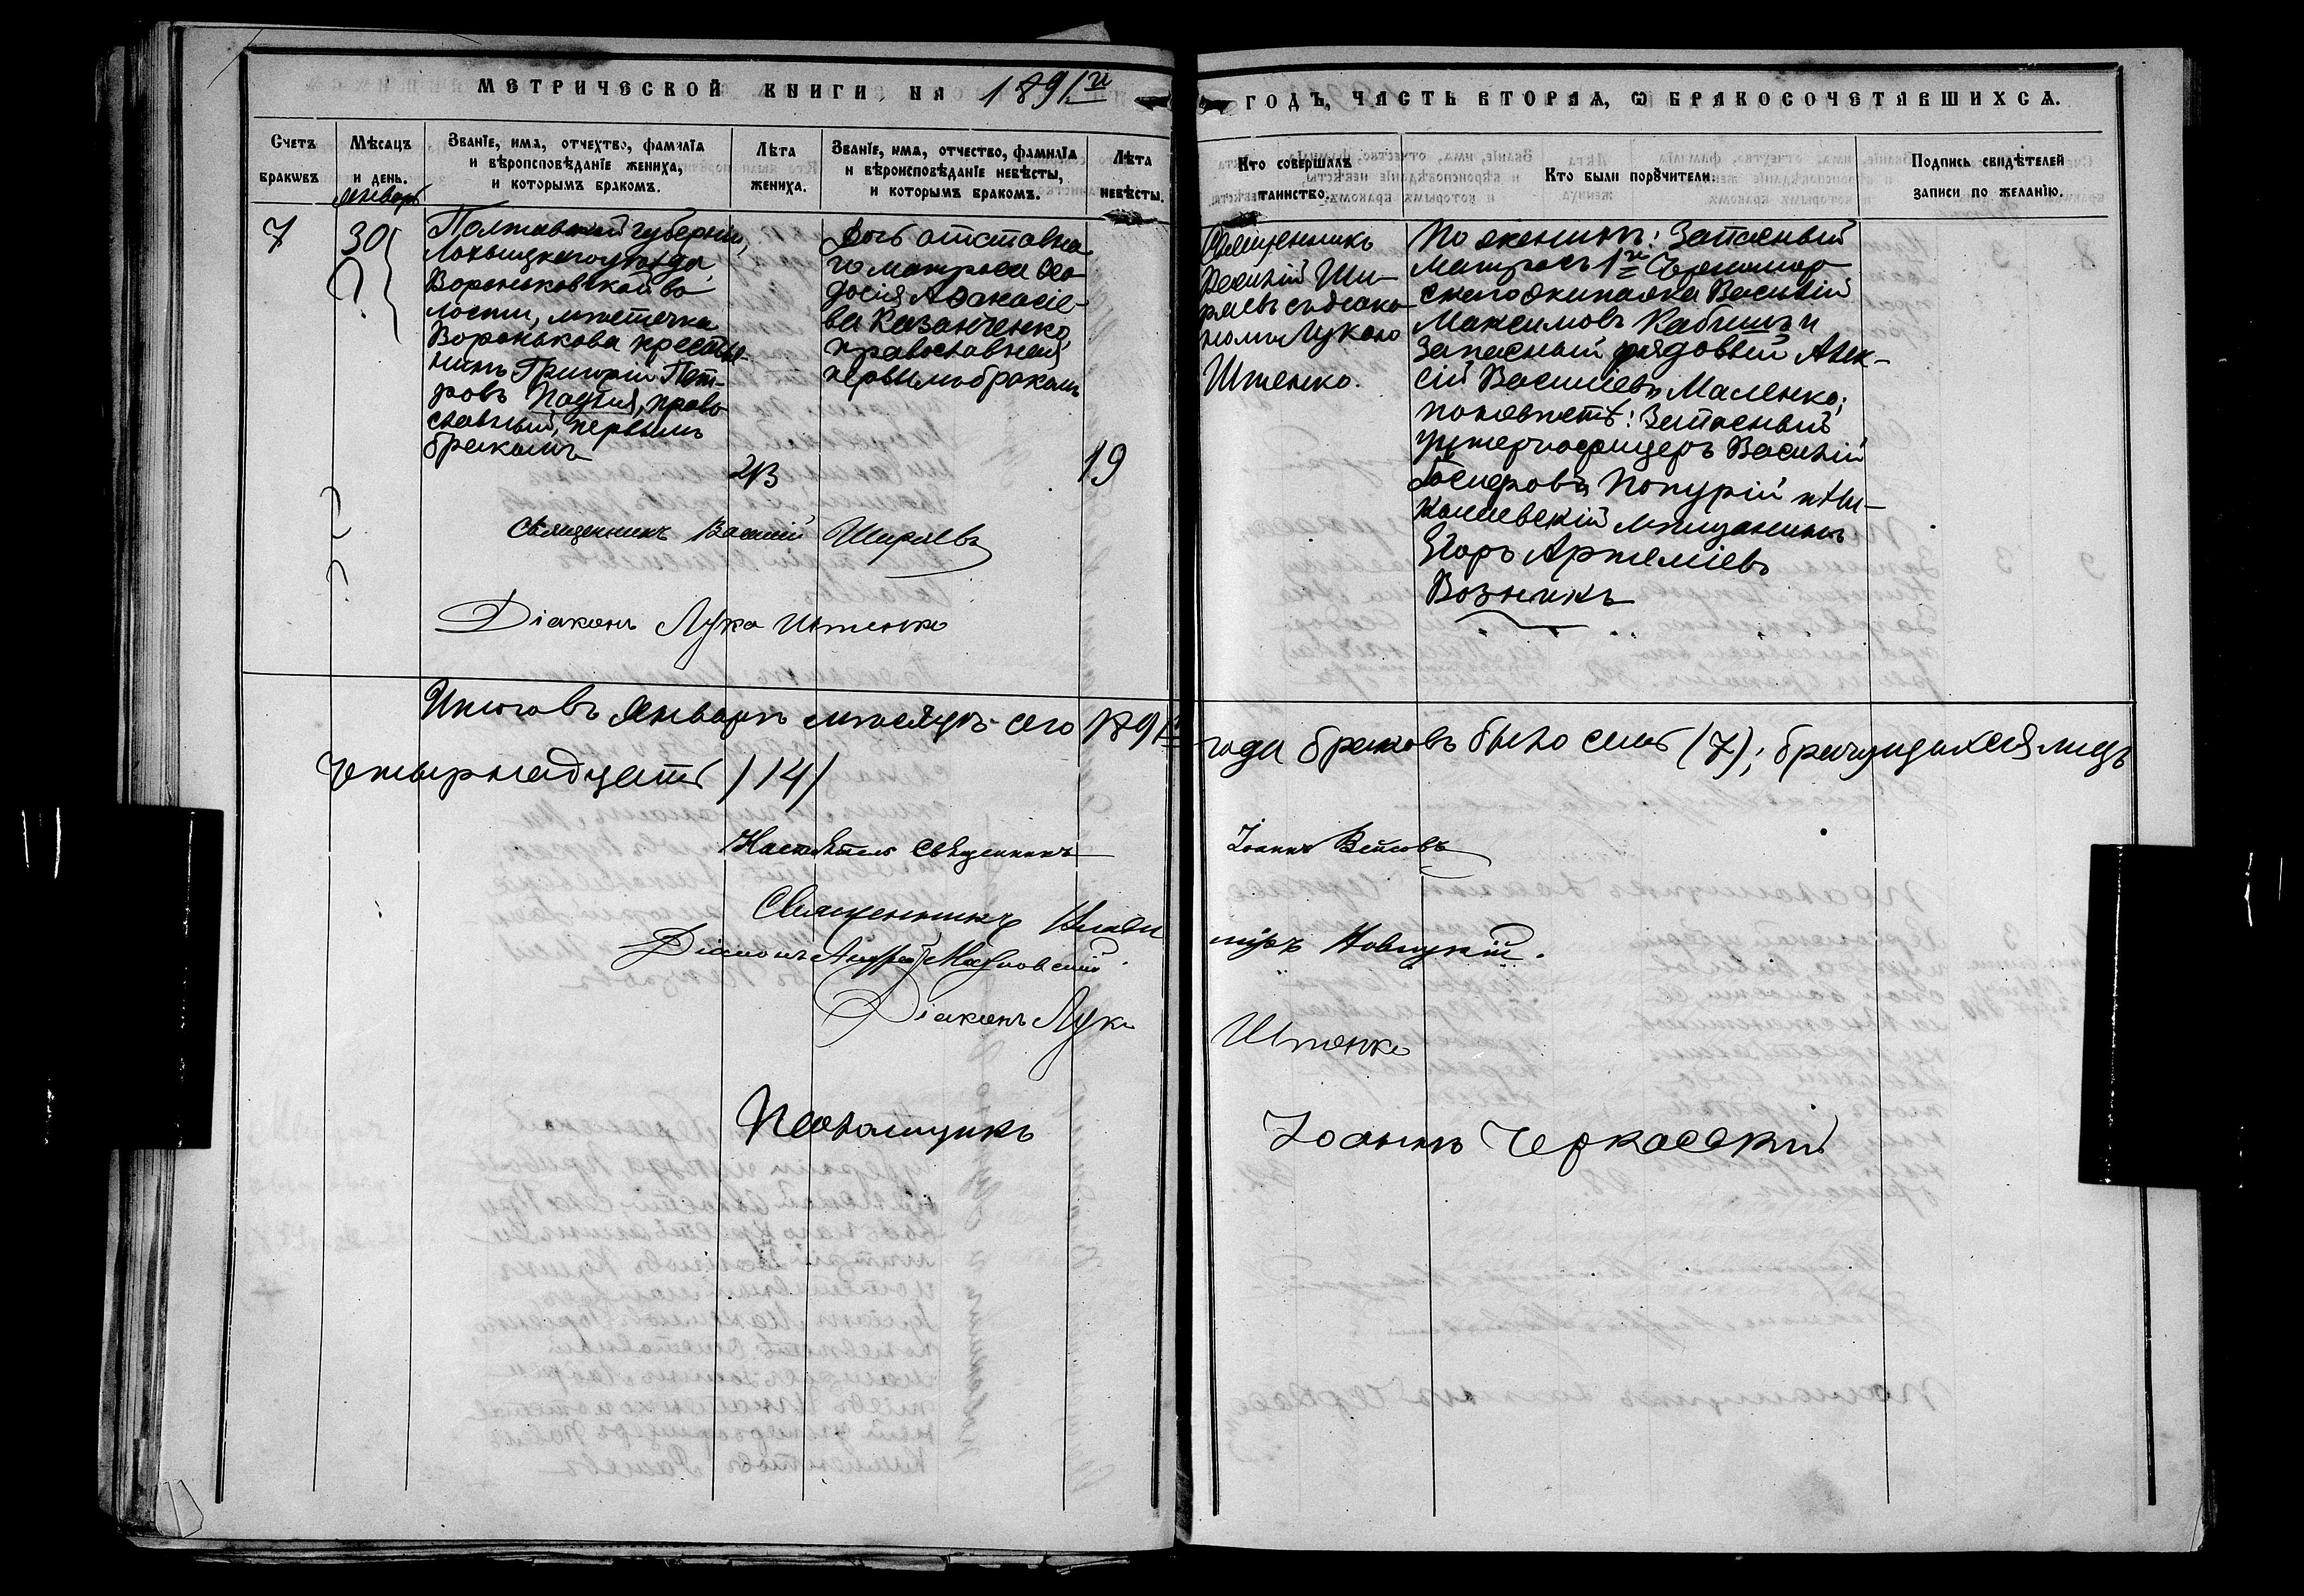 МЕТРИЧЕСКОЙ КНИГИ, НА 1891й ГОДЪ, ЧАСТЬ ВТОРАЯ, Ѡ БРАКОСОЧЕТАВШИХСЯ.
Счетъ браквъ
Мѣсяцъ и день.
Званіе, имя, отчество, фамилія и вѣроисповѣданіе жениха, и которымъ бракомъ.
Лѣта жениха.
Званіе, имя, отчество, фамилія и вѣроисповѣданіе невѣсты, и которымъ бракомъ.
Лѣта невѣсты.
Кто совершалъ таинство.
Кто были поручители.
Подпись свидѣтелей записи по желанію.
Январь
7
30
Полтавской губерніи,
Лохвицкаго уѣзда
Вороньковской во-
лости, мѣстечка
Воронькова крестья-
нинъ Григорій Пет-
ровъ Паутъя, право-
славный, первымъ
бракомъ
23
Дочь отставна-
го матроса Ѳео-
досія Аѳанасіе-
ва Казанченко,
православная,
первымъ бракомъ
19
Священникъ
Василій Ши-
ряевъ съ діако-
номъ Лукою
Иженко.
По женихѣ: Запасный
матросъ 1го Черномор-
скаго экипажа Василій
Максимовъ Кабышъ и
запасный рядовый Алек-
сій Василіевъ Масленко;
по невѣстѣ: Запасный
унтерофицеръ Василій
Попурій и Ни-
колаевскій мѣщанинъ
Егоръ Артеміевъ
Возникъ
Священникъ Василій Ширяевъ
Діаконъ Лука
Итого въ Январѣ мѣсяцѣ сего 1891го года браковъ было семь (7); брачущихся лицъ
четырнадцать /14/
Настоятель Священникъ Іоаннъ
Священникъ Влади миръ Новицкій.
Діаконъ Андрей
Діаконъ Лука
Псаломщикъ Іоаннъ Черкасскій